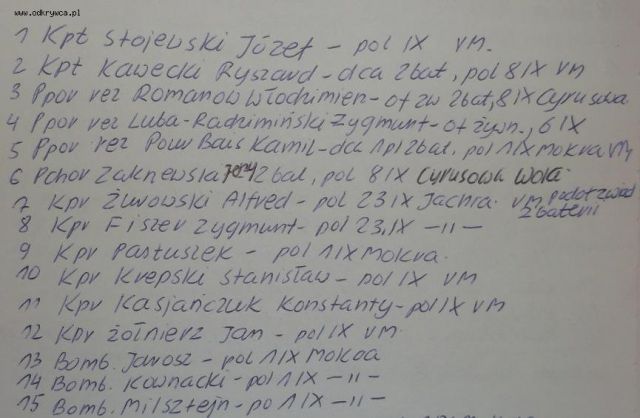 www.odkrywca.pl
1 Kpt Stojewski Józef - pol IX VM.
2 Kpt Kawecki Ryszard - dca 2bat, pol 8 IX VM
3 Ppor rez Romanow Włodzimierz - of zw 2bat, 8 IX Cyrusowa
4 Ppor rez Luba-Radzimiński Zygmunt - of żywn., 6 IX
5 Ppor rez Pouw Bais Kamil - dca 1pl 2bat, pol 1 IX Mokra VM
6 Pchor Zaknewska Jerzy 2bat, pol 8 IX Cyrusowa Wola
7 Kpr Żurowski Alfred - pol 23 IX Jachra VM podof zwiad
2 baterii
8 Kpr Fiszer Zygmunt - pol 23.IX -11-
9 Kpr Pastuszek - pol 1 IX Mokra.
10 Kpr Krepski Stanisław - pol IX VM
11 Kpr Kasjańczuk Konstanty - pol IX VM
12 Kpr Żołnierz Jan - pol IX VM.
13 Bomb. Jarosz - pol 1 IX Mokra
14 Bomb. Kownacki - pol 1 IX -11-
15 Bomb. Milsztejn - po 1 IX -11-